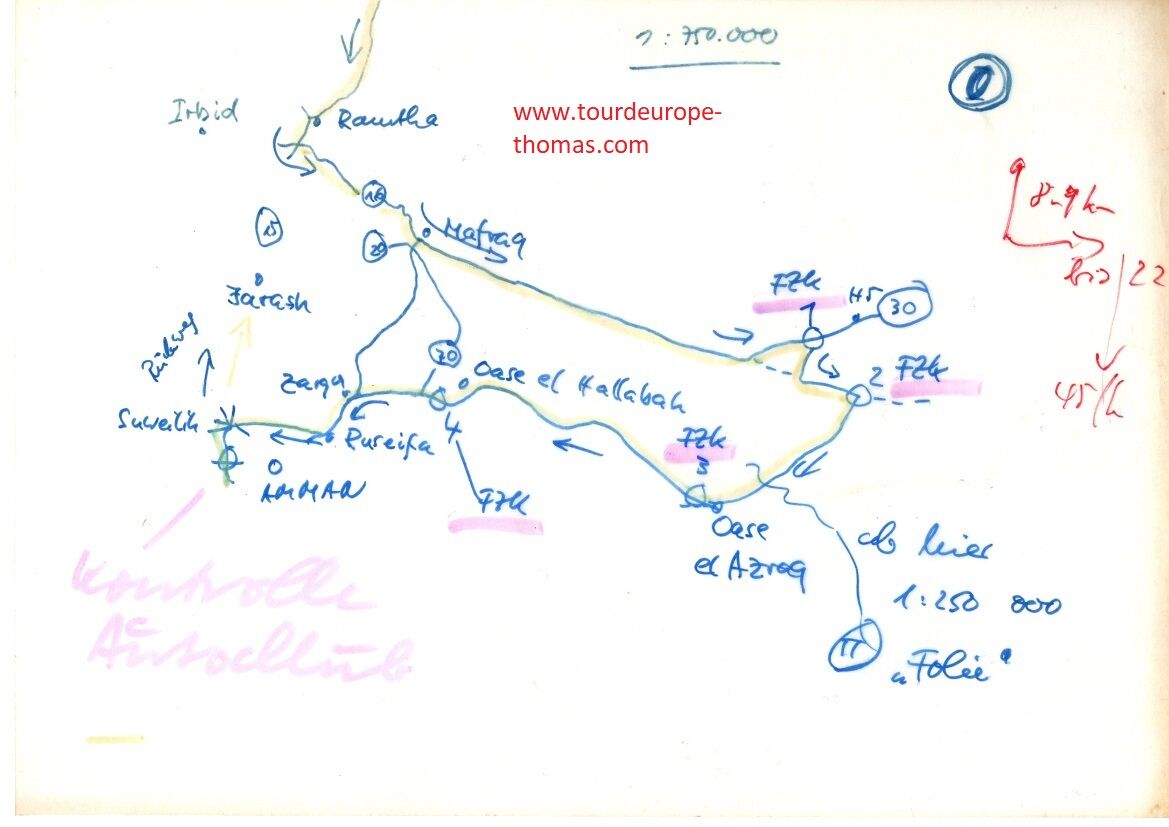 1:750.000
Irbid
Ramtha
www.tourdeurope-
thomas.com
8-9 km
bis 22
45/h
16
15
20
Mafraq
Jarash
FZK
1
H5
30
2
FZK
Rückweg
Zarqa
20
Oase el Hallabah
Suweilih
Ruseifa
4
FZK
3
AMMAN
FZK
Oase
el Azraq
ab hier
1:250 000
„Folie“
Kontrolle
Autoclub